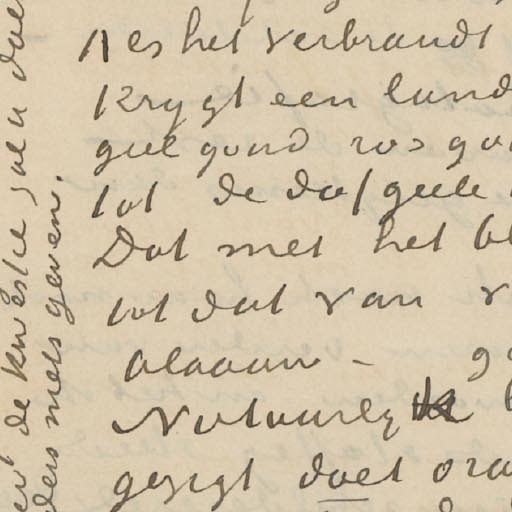 Nes het verbrandt
Krygt een land
geel goud ros go
tot de dofgeele
Dat met het bl
tot dat van v
blaauw - go
Natuurly k
gezigt doet ora
de kwestie zal u doe
ders mets geven.